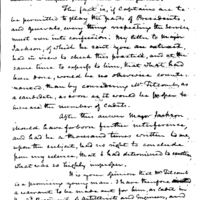 The fact is, if Captains are to
be permitted to play the parts of Presidents
and Generals, every thing respecting the service
must run into confusion. My letter to Major
Jackson, of which he sent you an extract,
had in view to check this practice, and at the
same time to express to him, that what had
been done, would be no otherwise counte-
nanced than by considering Mr Titcomb, as
a candidate as early as it would be proper to
increase the number of Cadets.
After this answer Major Jackson
should have forborn further interference
and had he a thousand times written to me
upon the subject, had no right to conclude
from my silence, that I had determined to
That was so highly improper.
It is your opinion that Mr Titcomb
is a promising young man. I have therefore
to be made out for him, as cadet in
the 2d Regiment of Artillerists and Engineers, and